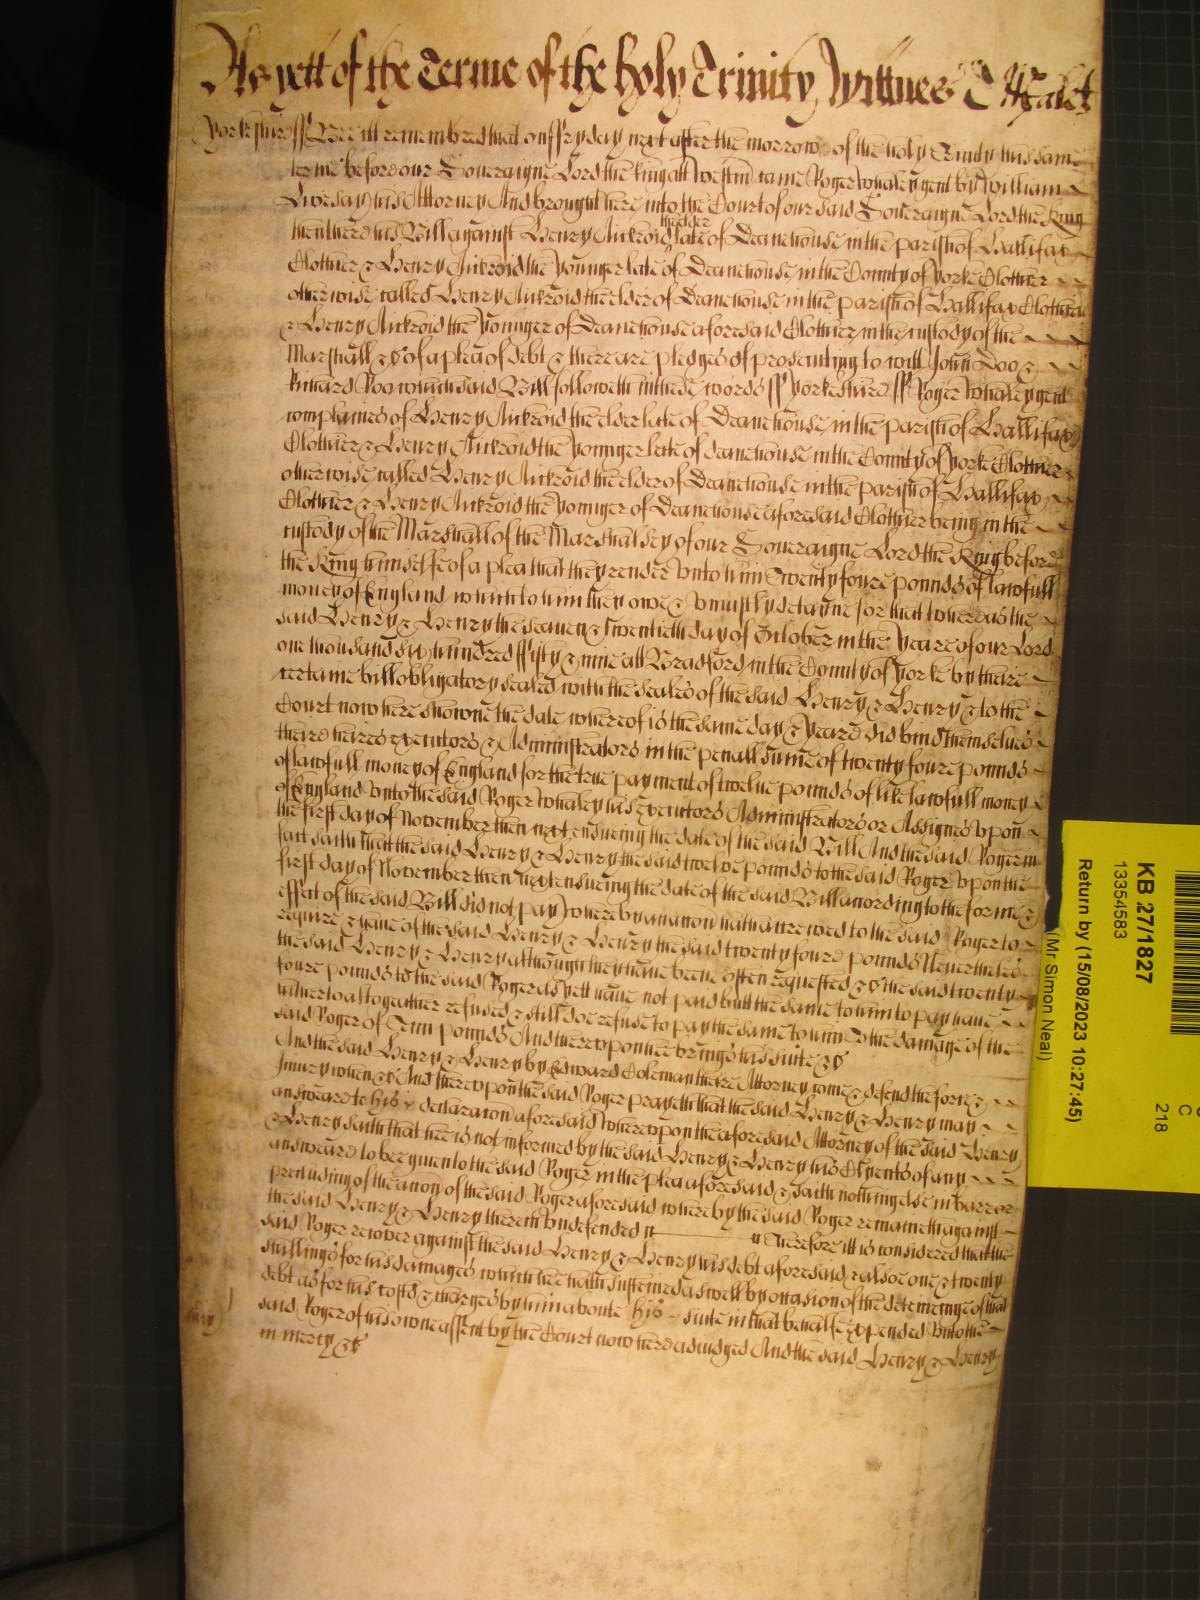 As yett of the Terme of the holy Trinity Wittnes T Malet
Yorkshire ss Bee itt remembred that on ffryday next after the morrow of the holy Trinity this same
terme before our Soveraigne Lord the King att Westm came Roger Whaley gent by William
Livesay his Attorney And brought here into the Court of our said Soveraigne Lord the King
the elder
then there his Bill against Henry Ackroid late of Deanehouse in the parish of Hallifax
Clothier & Henry Ackroid the younger late of Deanehouse in the County of Yorke Clothier
otherwise called Henry Ackroid the elder of Deanehouse in the parish of Hallifax Clothier
& Henry Ackroid the younger of Deanehouse aforesaid Clothier in the custody of the
Marshall &c of a plea of debt & there are pledges of prosecuting to witt John Doo &
Richard Roo which said Bill followeth in these words ss Yorkeshire ss Roger Whaley gent
complaines of Henry Ackroid the elder late of Deanehouse in the parish of Hallifax
Clothier & Henry Ackroid the younger late of deanehouse in the County of Yorke Clothier
otherwise called Henry Ackroid the elder of Deanehouse in the parish of Hallifax
Clothier & Henry Ackroid the younger of Deanehouse aforesaid Clothier being in the
custody of the Marshall of the Marshalsey of our Soveraigne Lord the King before
the King himselfe of a plea that they render unto him Twenty foure pounds of lawfull
money of England which to him they owe & uniustly detayne for that whereas the
said Henry & Henry the seaven & twentieth day of October in the yeare of our Lord
one thousand six hundred ffifty & nine att Bradford in the County of Yorke by theire
certaine bill obligatory sealed with the seales of the said Henry & Henry & to the
Court now here showne the date whereof is the same day & yeare did bind themselves
theire heires executors & Administrators in the penall sume of twenty foure pounds
of lawfull money of England for the true payment of twelve pounds of like lawfull money
of England unto the said Roger Whaley his executors Administrators or Assignes upon
the first day of November then next ensueing the date of the said Bill And the said Roger in
fact saith that the said Henry & Henry the said twelve pounds to the said Roger upon the
first day of November then next ensueing the date of the said Bill according to the forme &
effect of the said Bill did not pay whereby an action hath accrewed to the said Roger to
require & have of the said Henry & Henry the said twenty foure pounds Neverthelesse
the said Henry & Henry although they have been often requested &c the said twenty
foure pounds to the said Roger as yett have not paid butt the same to him to pay have
hitherto altogeather refused & still doe refuse to pay the same to him To the damage of the
said Roger of Tenn pounds And thereupon hee brings his suite &c
And the said Henry & Henry by Edward Coleman theire Attorney come & defend the force &
Iniury when &c And thereupon the said Roger prayeth that the said Henry & Henry may
answeare to his declaracon aforesaid whereupon the aforesaid Attorney of the said Henry
& Henry saith that hee is not informed by the said Henry & Henry his Clyents of any
answeare to bee given to the said Roger in the plea aforesaid & saith nothing else in barr or
precluding of the accon of the said Roger aforesaid whereby the said Roger remaineth against
the said Henry & Henry therein undefended Therefore itt is considered that the
said Roger recover against the said Henry & Henry his debt aforesaid & alsoe one & twenty
shillings for his damages which hee hath susteined aswell by occasion of the deteineing of that
debt as for his costs & charges by him aboute his suite in that behalfe expended unto the
said Roger of his owne assent by the Court now here adiudged And the said Henry & Henry
mercy
in mercy &c
KB 27/1827
13354583
Return by (15/08/2023 10:27:45)
(Mr Simon Neal)
C
218